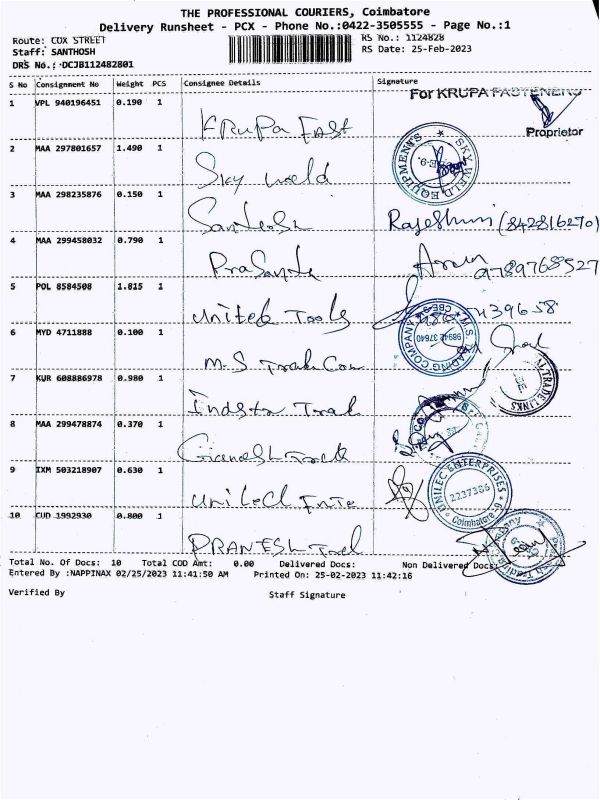 THE PROFESSIONAL COURIERS, Coimbatore
Delivery Runsheet - PCX - Phone No.:0422-3505555 - Page No.:1
Route: COX STREET
RS No.: 1124828
Staff: SANTHOSH
RS Date: 25-Feb-2023
DRS No.: DCJB112482801
S No Consignment No Weight PCS Consignee Details Signature
For KRUPA FASTENERS
1 VPL 940196451 0.190 1 Krupa Fast
Proprietor
2 MAA 297801657 1.490 1 Sky World
SKY WORLD EQUIPMENTS
3 MAA 298235876 0.150 1 Santhosh Rajeshwri (842816270)
4 MAA 299458032 0.790 1 Prasanth Arun
9789768527
5 POL 8584508 1.815 1 United Tools
439658
6 MYD 4711888 0.100 1 M.S Trad Com
M.S. TRADING COMPANY CBE-9
98942 37640
7 KUR 608886978 0.980 1 Indstr Trad
TRADE LINKS
8 MAA 299478874 0.370 1 Ganesh Trad
9 IXM 503218907 0.630 1 Unilecl Ente
UNILEC ENTERPRISES
2237386
Coimbatore-9
10 CUD 1992930 0.800 1 PRANESH Trad
Total No. Of Docs: 10 Total COD Amt: 0.00 Delivered Docs: Non Delivered Docs:
Entered By :NAPPINAX 02/25/2023 11:41:50 AM Printed On: 25-02-2023 11:42:16
Verified By Staff Signature